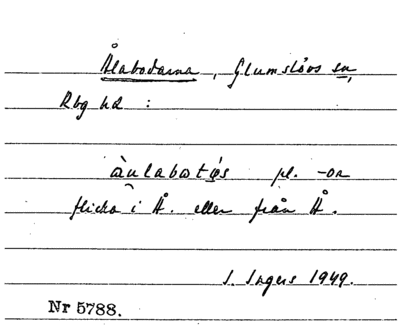 Ålabodarna, Glumslövs sn,
Rbg hd :
àulabotøs pl. -or
flicka i Å. eller från Å.
I. Ingers 1949.
Nr 5788.